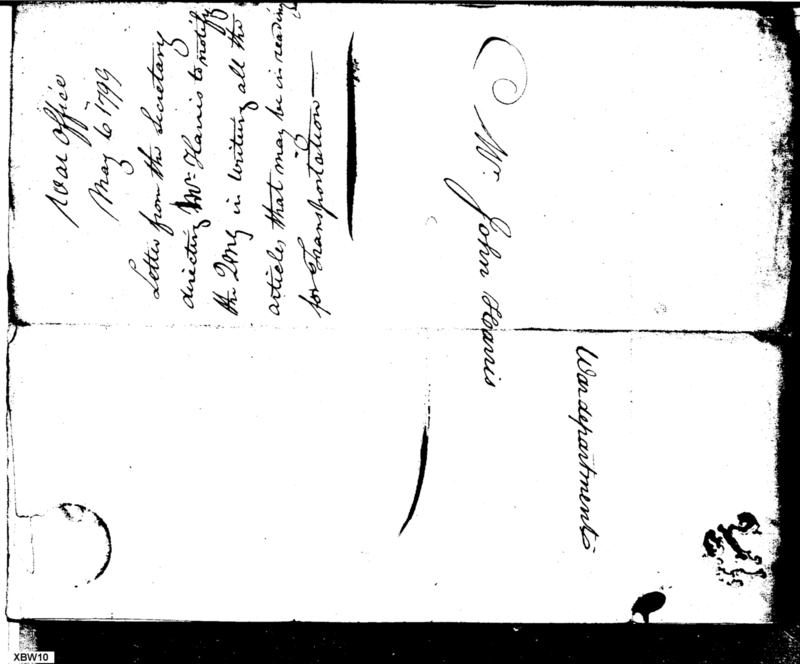 War Office
May 6 1799
Letter from the Secretary
directing Mr. Harris to notify
the QMG in writing all the
articles that may be in readiness
for Transportation
Mr. John Harris
War department
XBW10